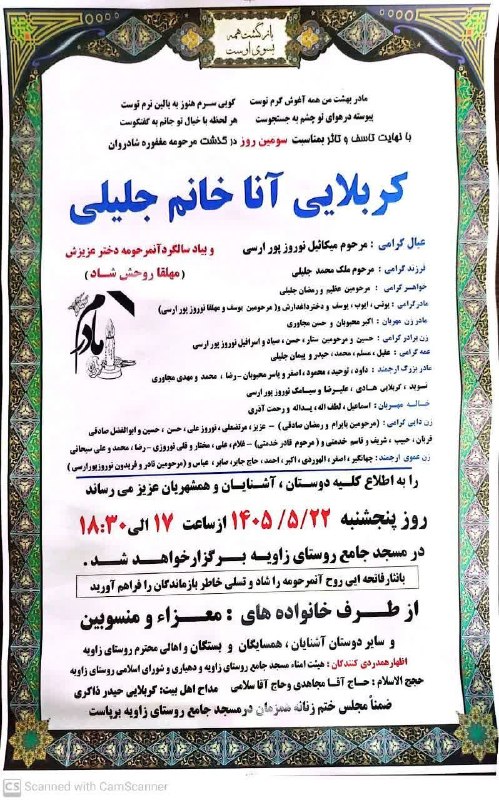 بازگشت همه
بسوی اوست
مادر بهشت من همه آغوش گرم توست   گویی سرم هنوز به بالین نرم توست
پیوسته در هوای تو چشم به جستجوست   هر لحظه با خیال تو جانم به گفتگوست
با نهایت تاسف و تاثر بمناسبت سومین روز درگذشت مرحومه مغفوره شادروان
کربلایی آنا خانم جلیلی
عیال گرامی : مرحوم میکائیل نوروز پور ارسی
و بیاد سالگردآنمرحومه دختر عزیزش
( مهلقا روحش شاد )
فرزند گرامی : مرحوم ملک محمد جلیلی
خواهر گرامی : مرحومین عظیم و رمضان جلیلی
مادرگرامی : یونش، ایوب، یوسف و دخترداغدارش و( مرحومین یوسف و مهلقا نوروز پور ارسی )
مادر زن مهربان : اکبر محبوبان و حسن مجاوری
زن برادر گرامی : حسین و مرحومین ستار، حسن، صیاد و اسرافیل نوروز پور ارسی
عمه گرامی : عقیل، مسلم، محمد، حیدر و پیمان جلیلی
مادر بزرگ ارجمند : داود، توحید، محمود، اصغر و یاسر محبوبان - رضا ، محمد و مهدی مجاوری
نوید، کربلایی هادی ، علیرضا و سیامک نوروز پور ارسی
خاله مهربان : اسماعیل، لطف اله، یداله و رحمت آذری
زن دایی گرامی : (مرحومین بایرام و رمضان صادقی ) - عزیز، مرتضعلی، نوروز علی، حسن، حسین و ابوالفضل صادقی
قربان، حبیب، شریف و قاسم خدمتی و ( مرحوم قادر خدمتی) - غلام، علی، مختار و قلی نوروزی - رضا، محمد و علی سبحانی
زن عموی ارجمند : جهانگیر، اصغر، الهوردی، اکبر، احمد، حاج جابر، صابر، عباس و (مرحومین نادر و فریدون نوروزپورارسی )
مادرم
را به اطلاع کلیه دوستان ، آشنایان و همشهریان عزیز می رساند
روز پنجشنبه ۱۴۰۵/۵/۲۲ از ساعت ۱۷ الی ۱۸:۳۰
در مسجد جامع روستای زاویه برگزارخواهد شد .
باننارفاتحه ایی روح آنمرحومه را شاد و تسلی خاطر بازماندگان را فراهم آورید
از طرف خانواده های : معزاء و منسوبین
و سایر دوستان آشنایان ، همسایگان و بستگان و اهالی محترم روستای زاویه
اظهارهمدردی کنندگان : هیئت امناء مسجد جامع روستای زاویه و دهیاری و شورای اسلامی روستای زاویه
حجج الاسلام : حاج آقا مجاهدی وحاج آقا سلامی   مداح اهل بیت: کربلایی حیدر ذاکری
ضمناً مجلس ختم زنانه همزمان در مسجد جامع روستای زاویه برپاست
CS Scanned with CamScanner